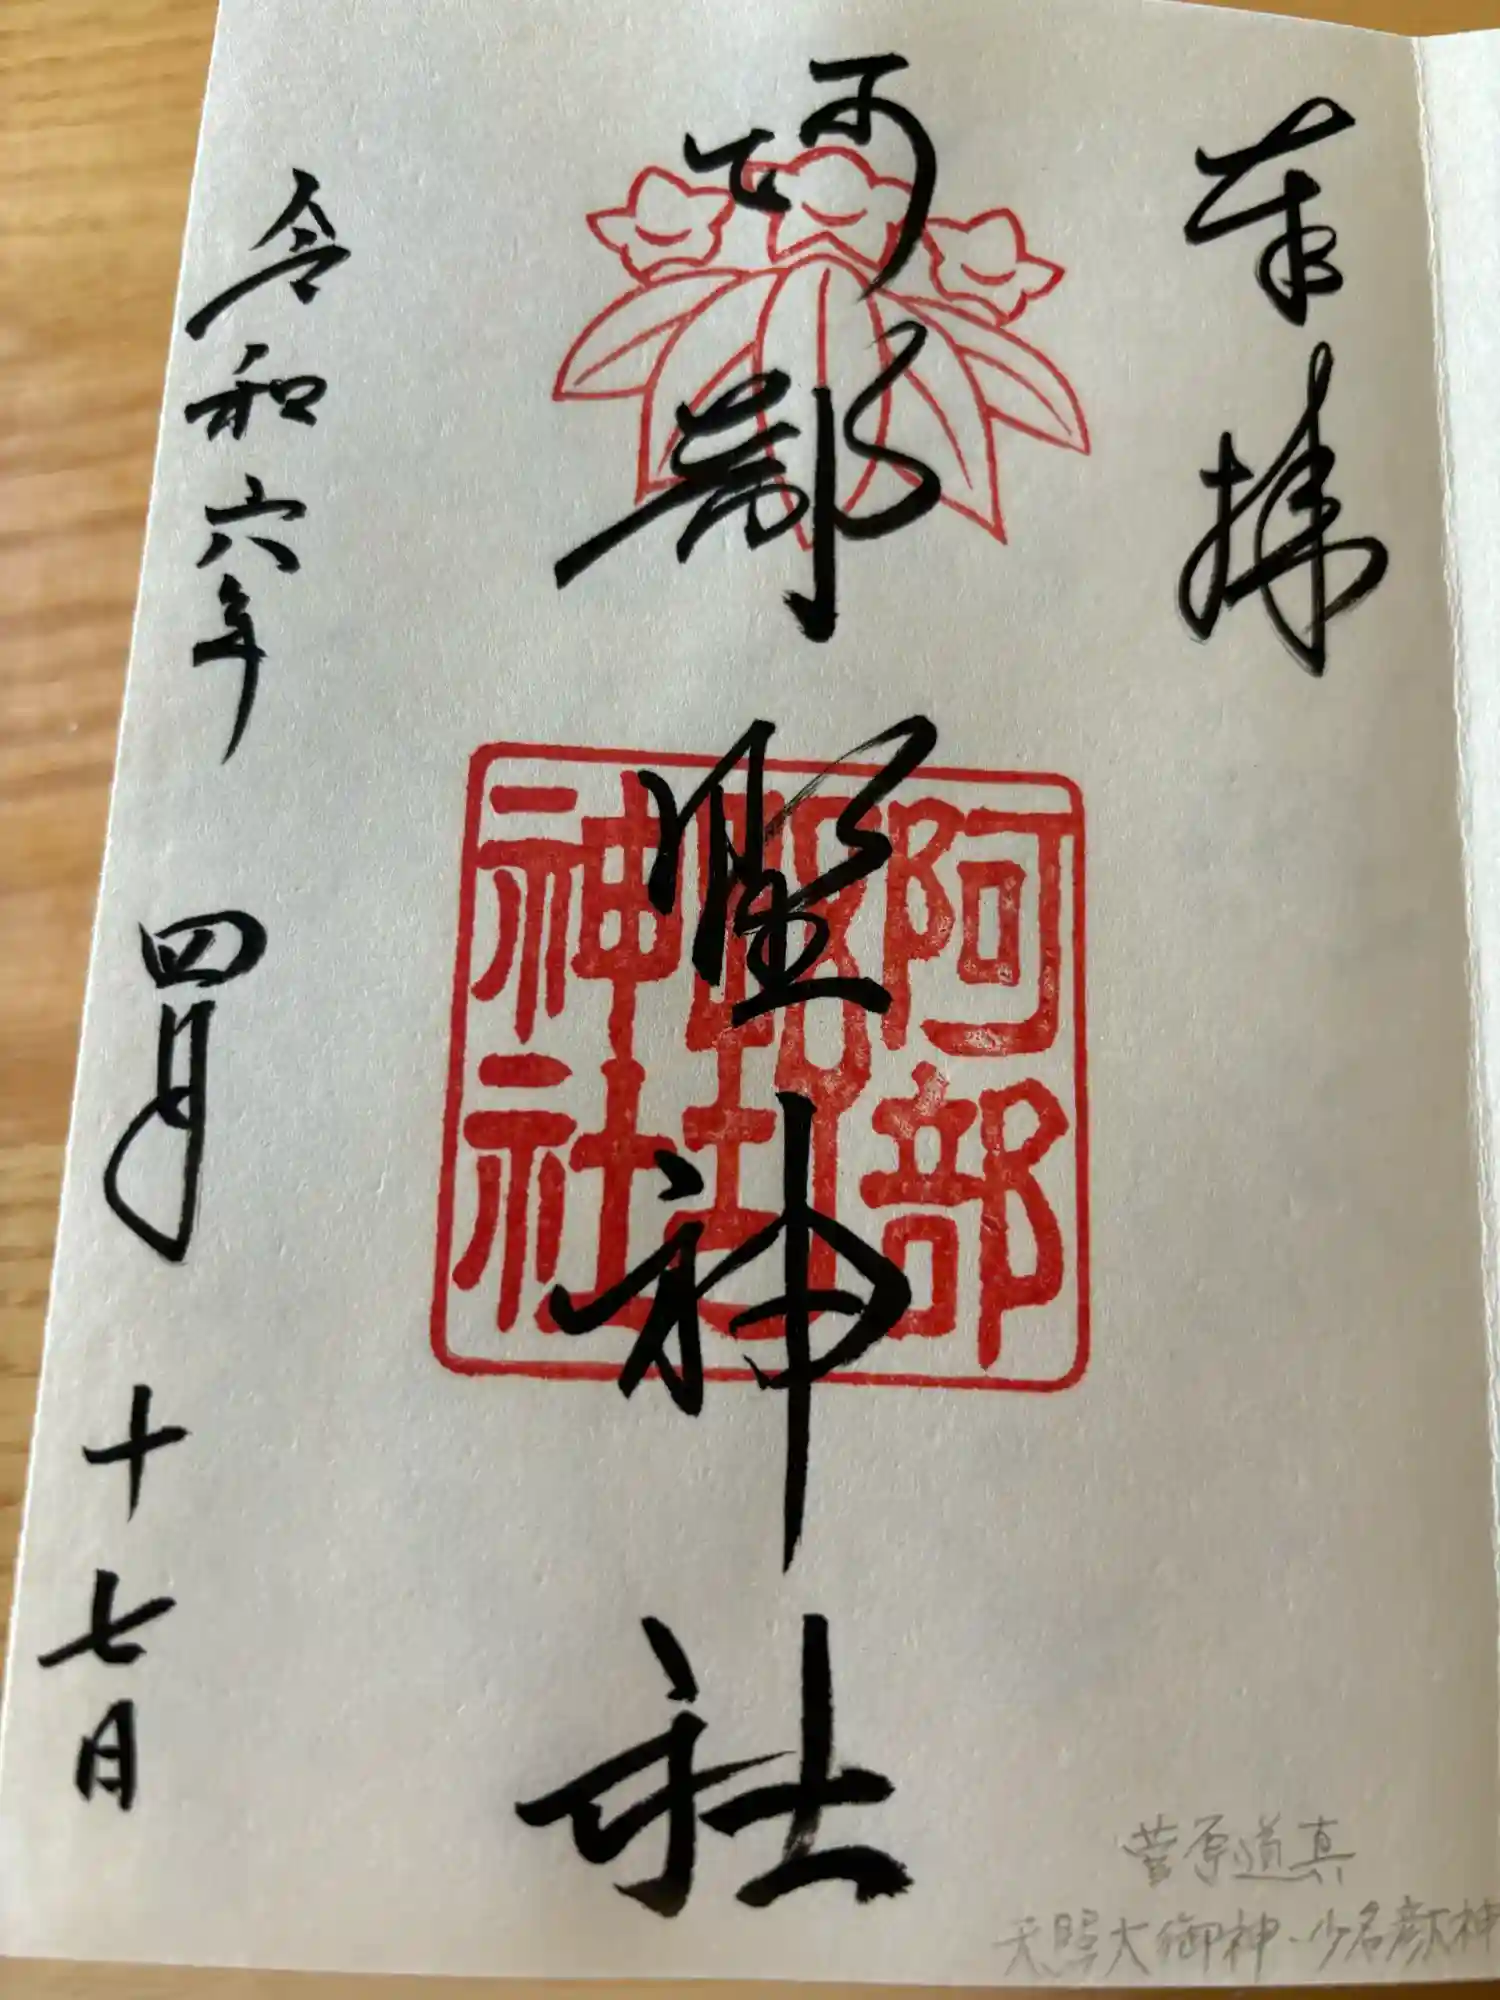 奉拝
阿部堅神社
阿部
堅
神社
令和六年四月十七日
菅原道真
天照大御神・少名顔神